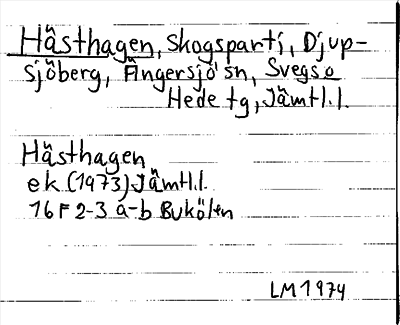 Hästhagen, skogsparti, Djup-
sjöberg, Ängersjö sn, Svegs o
Hede tg, Jämtl.l.
Hästhagen
ek (1973) Jämtl.l.
16 F 2-3 a-b Bukölen
LM 1974